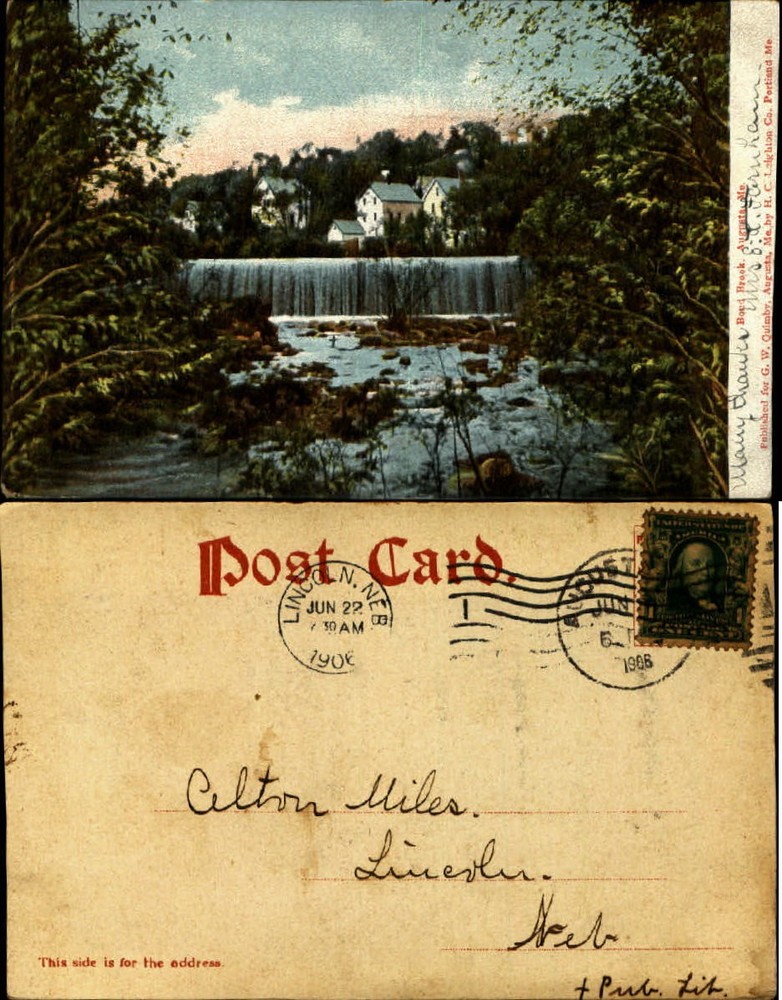 Bond Brook, Augusta, Me.
Published for G. W. Quimby, Augusta, Me. by H. C. Leighton Co. Portland Me.
Many thanks Mrs
Post Card.
LINCOLN, NEB
JUN 22
30 AM
1906
AUGUST
JUN
1906
Celton Miles.
Lincoln.
Neb
This side is for the address.
+ Pub. Lib.